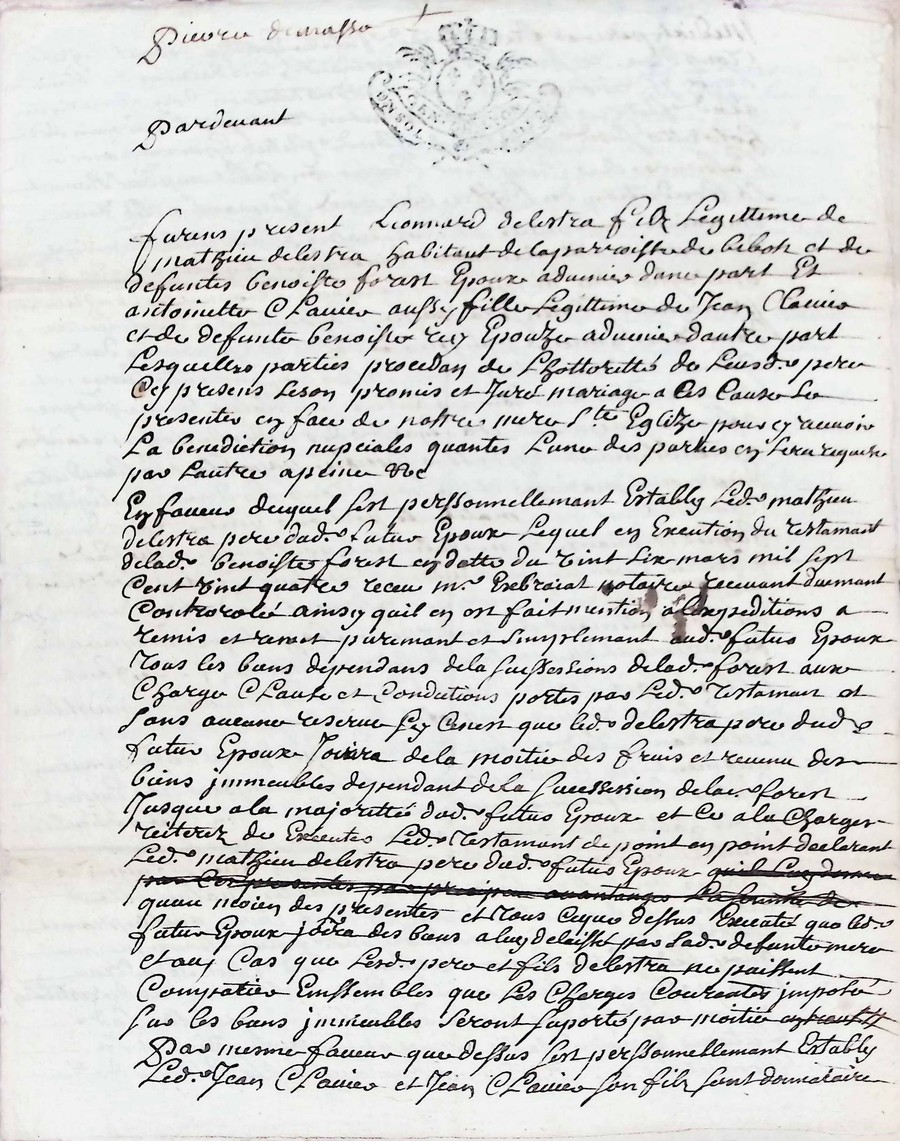 Pierre demasso
GEN DE LYON
UN SOL
Pardevant
furens present Lionnard delestra filz Legittime de
mathieu delestra habitant de la parroisse de bibost et de
defuntes benoiste forest Epoux advenir dune part Et
antoinette Clavier aussy fille Legittime de Jean Clavier
et de defunte benoiste rey Epouze advenir dautre part
Lesquelles parties procedan de Lhottoritté de Leursd. pere
Cy presens Leson promis et Juré mariage a Ces Cause Se
presenter en face de nottre mere Ste Eglize pour y recevoir
La benediction nupciales quantes Lune des parties en Sera requise
par Lautre a peine &c
En faveur duquel Sest perssonnellemant Estably Led. mathieu
delestra pere dud. futur Epoux Lequel en Execution du testamant
delad. benoiste forest en datte du vint six mars mil sept
Cent vint quatre receu me. notaire recevant duemant
Controrolé ainsy quil en est fait mention a Lexpeditions a
remis et remet puremant et Simplemant aud. futur Epoux
tous les biens dependans de la Suissessions delad. forest aux
Charge Clause et Conditions portes par Led. Testamant et
Sans aucune reserve Sy Cenest que led. delestra pere dud.
futur Epoux Joüira de la moitié des fruis et revenu des
biens immeubles dependant de la Sucession delad. forest
Jusque a la majorittée dud. futur Epoux et Ce a la Charges
reiterez de Executer Led. Testamant de point en point declerant
Led. mathieu delestra pere dud. futur Epoux quil Luy donne
par Ces presentes par precipu avantange La Somme de
quau moien des presentes et tous Ceque dessus Executé que led.
futur Epoux joüira des biens a luy delaissé par Sad. defunte mere
et au Cas que Lesd. pere et fils delestra ne puissent
Compatir Emssembles que Les Charges Courentes imposé
Sur les biens immeubles Seront Suporté par moitié
Par mesme faveur que dessus Sest perssonnellemant Estably
Led. Jean Clavier et Jean Clavier Son filz Sont donnataire